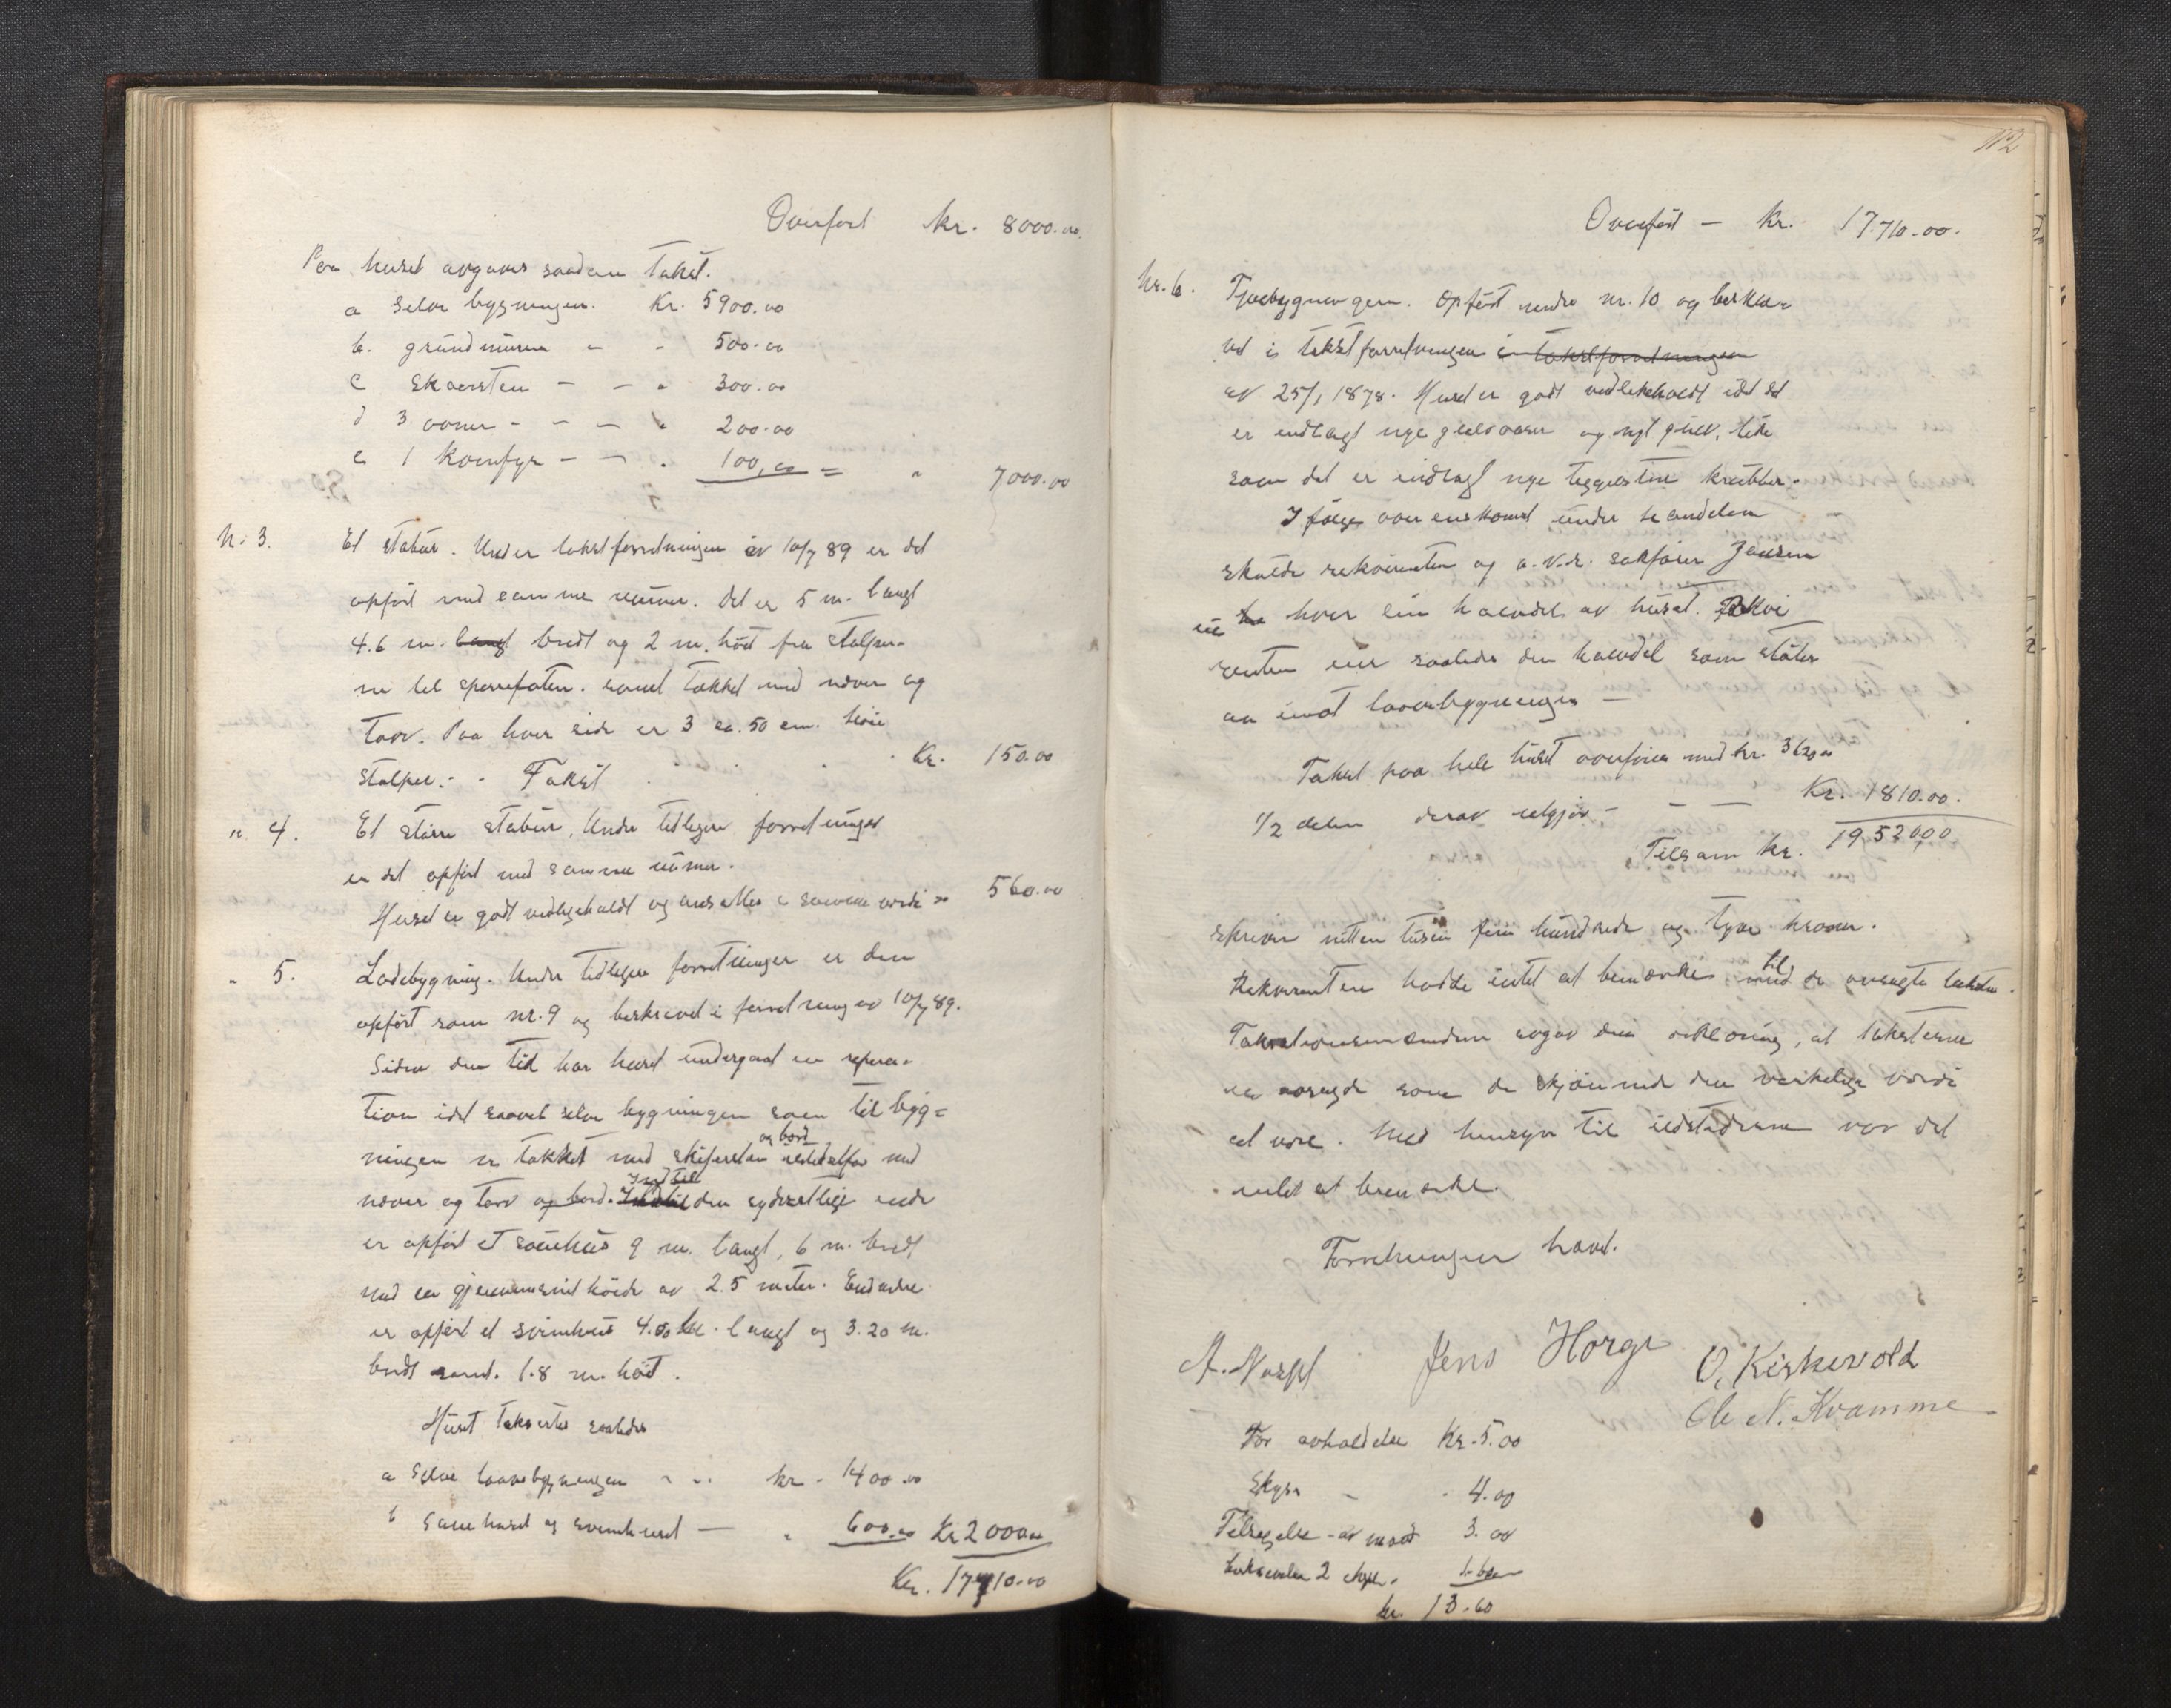 Overført kr. 8000.00
Paa huset avgaves saadan takst.
a selve bygningen. Kr. 5900.00
b. grundmuren - - 500.00
c skorsten - - - 300.00
d 3 ovner - - - - 200.00
e 1 komfyr - - . 100,00 = " 7000.00
Nr 3. Et stabur. Under takstforretningen av 10/7 89 er det
opført med samme numer. Det er 5 m. langt
4.6 m. langt bredt og 2 m. høit fra stolper-
ne til sperrefoten. samt tækket med næver og
torv. Paa hver side er 3 ca. 50 cm. høie
stolper. - Takst . . . Kr. 150.00
" 4. Et større stabur, Under tidligere forretninger
er det opført med samme numer.
Huset er godt vedlikeholdt og ansættes i samme værdi " 560.00
- 5. Ladebygning. Under tidligere forretninger er den
opført som nr. 9 og beskrevet i forretning av 10/7 89.
Siden den tid har huset undergaat en repera-
tion idet saavel selve bygningen som tilbyg-
ningen er tækket med skifersten og bord istedetfor med
næver og torv og bord. Indtil Ind til den sydvestlige ende
er opført et sauehus 9 m. langt, 6 m. bredt
med en gjennemsnit høide av 2.5 meter. Endvidere
er opført et svinehus 4.00 m. langt og 3.20 m.
bredt samt. 1.8 m. høit.
Huset takseres saaledes
a Selve laavebygningen - - kr - 1400.00
b Sauehuset og svinehuset - " 600.00 Kr 2000.00
Kr. 17710.00
112
Overført - Kr. 17.710.00.
Nr. 6. Fjøsbygningen. Opført under nr. 10 og beskre-
vet i takstforretningen i takstforretningen
av 25/1 1878. Huset er godt vedlikeholdt idet det
er indlagt nye gulvaaser og nyt gulv, like
som det er indlagt nye krubber.
I følge overenskomst under handelen
skulde rekvirenten og o.r.s. sakfører Jansen
eie hver sin halvdel av huset. Rekvi
renten eier saaledes den halvdel som støter
an imot laavebygningen -
Takst paa hele huset overføres med kr. 3620.00
1/2 delen derav utgjør - - - Kr. 1810.00.
Tilsam kr. 19520.00
skriver nitten tusen fem hundrede og tyve kroner.
Rekvirenten hadde intet at bemærke til med de avsagte takster.
Taxationsmændene avgav den erklæring, at taksterne
er avsagde som de skjønnede den verkelige værdi
at være. Med hensyn til ildstederne var det
intet at bemærke.
Forretningen hævet.
Jens Horge O. Kirkevold
Ole N. Kvamme
For avholdelse Kr. 5.00
Skyss - - 4.00
Tilsigelse av mænd 3.00
2 1.60
kr. 13.60